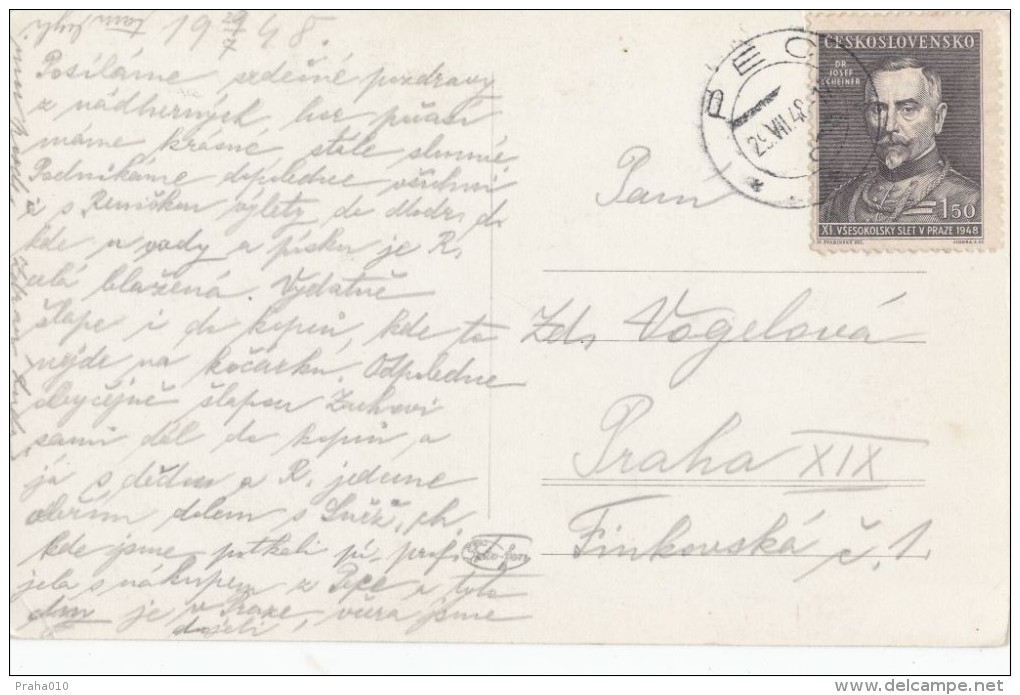 19 29/7 48.
Posíláme srdečné pozdravy
z nádherných hor počasí
máme krásné stále slunné
Podnikáme dopoledne všichni
i s Reničkou výlety do Modr. d.
kde u vody a písku je R.
celá blažená. Vydatně
šlape i do kopců, kde to
nejde na kočárku. Odpoledne
obyčejně šlapou Zuhovi
sami dál do kopců a
já s dědou a R. jedeme
obřím dolem s
kde jsme potkali pí. prof.
jela s nákupem z Pece a tyto
dny je v Praze, včera jsme
dojeli
PEC
29.VII.48
ČESKOSLOVENSKO
DR. JOSEF SCHEINER
1.50
XI. VŠESOKOLSKÝ SLET V PRAZE 1948
Paní
Zd. Vogelová
Praha XIX
Finkovská č. 1.
Praha010
delcampe.net